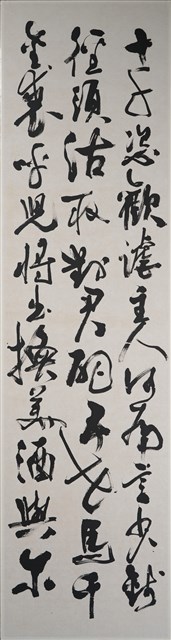 十千恣歡謔主人何為言少錢
徑須沽取對君酌五花馬千
金裘呼兒將出換美酒與尔